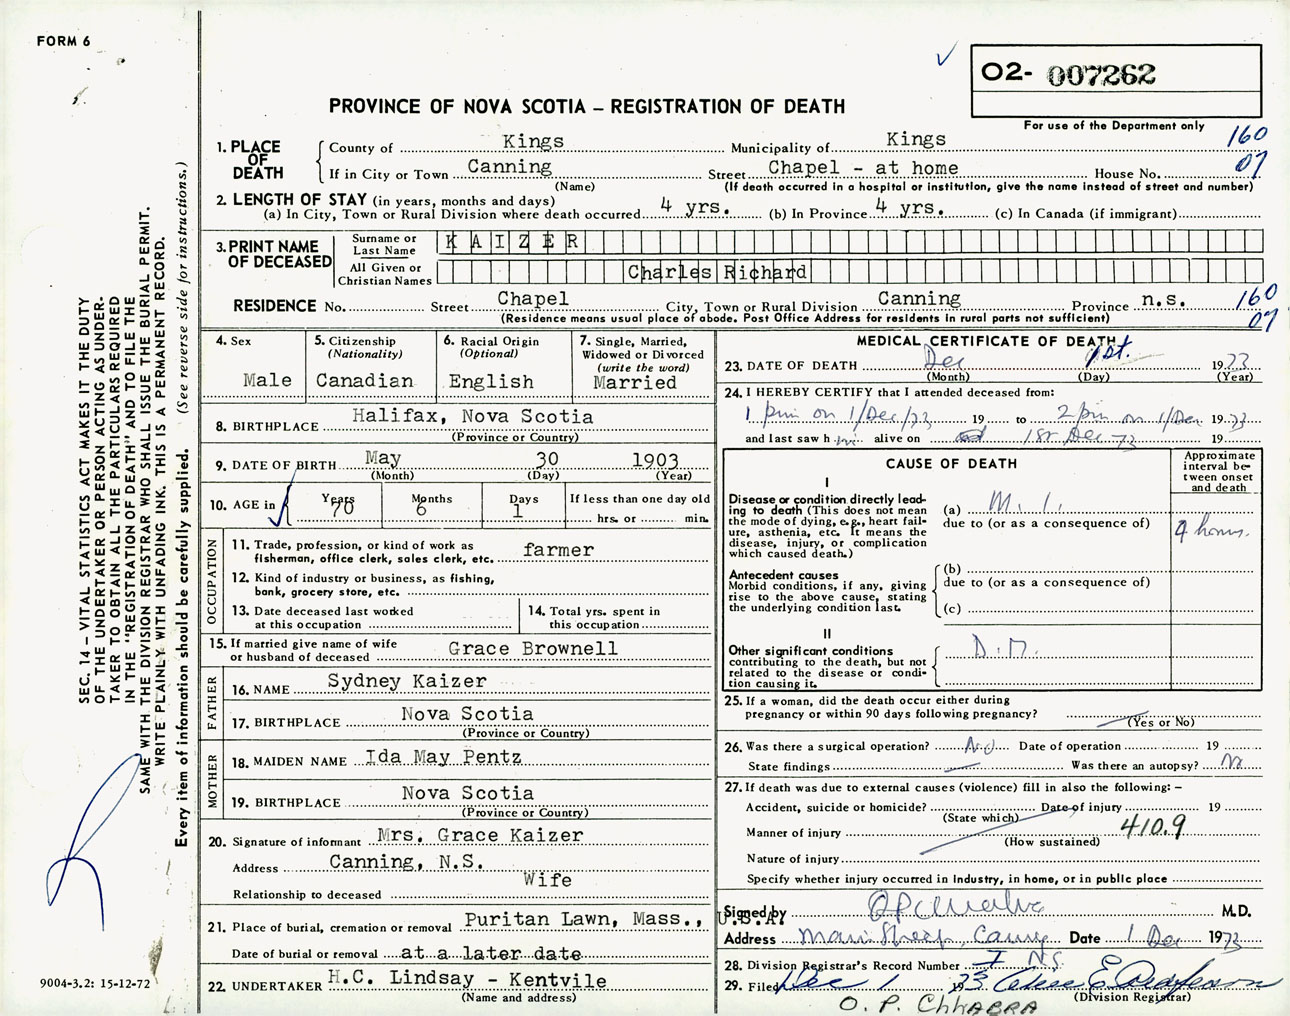 FORM 6
O2- 007262
For use of the Department only
PROVINCE OF NOVA SCOTIA – REGISTRATION OF DEATH
160
07
1. PLACE OF DEATH
County of Kings Municipality of Kings
If in City or Town Canning Street Chapel - at home House No.
(Name) (If death occurred in a hospital or institution, give the name instead of street and number)
2. LENGTH OF STAY (in years, months and days)
(a) In City, Town or Rural Division where death occurred 4 yrs. (b) In Province 4 yrs. (c) In Canada (if immigrant)
3. PRINT NAME OF DECEASED
Surname or Last Name KAIZER
All Given or Christian Names Charles Richard
RESIDENCE No. Street Chapel City, Town or Rural Division Canning Province n.s.
(Residence means usual place of abode. Post Office Address for residents in rural parts not sufficient)
160
07
4. Sex
Male
5. Citizenship
(Nationality)
Canadian
6. Racial Origin
(Optional)
English
7. Single, Married,
Widowed or Divorced
(write the word)
Married
8. BIRTHPLACE Halifax, Nova Scotia
(Province or Country)
9. DATE OF BIRTH May 30 1903
(Month) (Day) (Year)
10. AGE in
Years 70
Months 6
Days 1
If less than one day old
hrs. or min.
OCCUPATION
11. Trade, profession, or kind of work as
fisherman, office clerk, sales clerk, etc. farmer
12. Kind of industry or business, as fishing,
bank, grocery store, etc.
13. Date deceased last worked
at this occupation
14. Total yrs. spent in
this occupation
15. If married give name of wife
or husband of deceased Grace Brownell
FATHER
16. NAME Sydney Kaizer
17. BIRTHPLACE Nova Scotia
(Province or Country)
MOTHER
18. MAIDEN NAME Ida May Pentz
19. BIRTHPLACE Nova Scotia
(Province or Country)
20. Signature of informant Mrs. Grace Kaizer
Address Canning, N.S.
Relationship to deceased Wife
21. Place of burial, cremation or removal Puritan Lawn, Mass., U.S.A.
Date of burial or removal at a later date
22. UNDERTAKER H.C. Lindsay - Kentvile
(Name and address)
MEDICAL CERTIFICATE OF DEATH
23. DATE OF DEATH Dec 1st. 1973
(Month) (Day) (Year)
24. I HEREBY CERTIFY that I attended deceased from:
1 pm on 1/Dec/73 19 to 2 pm on 1/Dec 1973
and last saw him alive on 1st Dec 73 19
CAUSE OF DEATH
Approximate
interval be-
tween onset
and death
I
Disease or condition directly lead-
ing to death (This does not
mean the mode of dying, e.g., heart fail-
ure, asthenia, etc. It means the
disease, injury, or complication
which caused death.)
(a) M.I.
due to (or as a consequence of)
hours.
Antecedent causes
Morbid conditions, if any, giving
rise to the above cause, stating
the underlying condition last.
(b)
due to (or as a consequence of)
(c)
II
Other significant conditions
contributing to the death, but not
related to the disease or condi-
tion causing it.
D.M.
25. If a woman, did the death occur either during
pregnancy or within 90 days following pregnancy?
(Yes or No)
26. Was there a surgical operation? No Date of operation 19
State findings Was there an autopsy? No
27. If death was due to external causes (violence) fill in also the following: –
Accident, suicide or homicide? Date of injury 19
(State which)
Manner of injury 410.9
(How sustained)
Nature of injury
Specify whether injury occurred in industry, in home, or in public place
Signed by OPChhabra M.D.
Address Main Street, Canning N.S. Date 1 Dec 1973
28. Division Registrar's Record Number
29. Filed Dec 1 1973
(Division Registrar)
O. P. CHHABRA
SEC. 14 – VITAL STATISTICS ACT MAKES IT THE DUTY
OF THE UNDERTAKER OR PERSON ACTING AS UNDER-
TAKER TO OBTAIN ALL THE PARTICULARS REQUIRED
IN THE "REGISTRATION OF DEATH" AND TO FILE THE
SAME WITH THE DIVISION REGISTRAR WHO SHALL ISSUE THE BURIAL PERMIT.
WRITE PLAINLY WITH UNFADING INK. THIS IS A PERMANENT RECORD.
Every item of information should be carefully supplied. (See reverse side for instructions.)
9004-3.2: 15-12-72